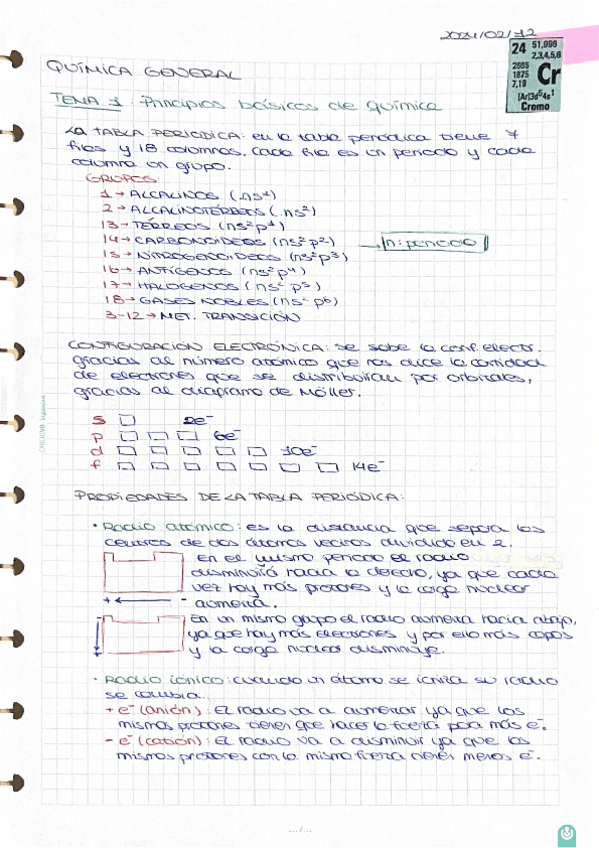 2021/02/12
24 51,996
2,3,4,5,6
2665
1875
7,19
Cr
[Ar]3d⁵4s¹
Cromo
QUÍMICA GENERAL
TEMA 1: Principios básicos de química
LA TABLA PERIÓDICA: en la tabla periódica tiene 7
filas y 18 columnas. Cada fila es un periodo y cada
columna un grupo.
GRUPOS
1 → ALCALINOS (ns¹)
2 → ALCALINOTÉRREOS (ns²)
13 → TÉRREOS (ns²p¹)
14 → CARBONOIDEOS (ns²p²) → n: periodo
15 → NITROGENOIDEOS (ns²p³)
16 → ANFÍGENOS (ns²p⁴)
17 → HALÓGENOS (ns²p⁵)
18 → GASES NOBLES (ns²p⁶)
3-12 → MET. TRANSICIÓN
CONFIGURACIÓN ELECTRÓNICA: se sabe la conf. electr.
gracias al número atómico que nos dice la cantidad
de electrones que se distribuirán por orbitales,
gracias al diagrama de Möller.
s 2e⁻
p 6e⁻
d 10e⁻
f 14e⁻
PROPIEDADES DE LA TABLA PERIÓDICA:
· Radio atómico: es la distancia que separa los
centros de dos átomos vecinos dividido en 2.
En el mismo periodo el radio
disminuirá hacia la derecha, ya que cada
vez hay más protones y la carga nuclear
aumenta.
+ ← -
En un mismo grupo el radio aumenta hacia abajo,
ya que hay más electrones y por ello más capas
y la carga nuclear disminuye.
- +
· Radio iónico: cuando un átomo se ioniza su radio
se cambia.
+ e⁻ (anión): El radio va a aumentar ya que los
mismos protones tienen que hacer la fuerza para más e⁻.
- e⁻ (catión): El radio va a disminuir ya que los
mismos protones con la misma fuerza tienen menos e⁻.
.../...